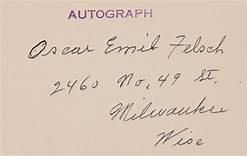 AUTOGRAPH
Oscar Emil Felsch
2460 No, 49 St.
Milwaukee
Wisc